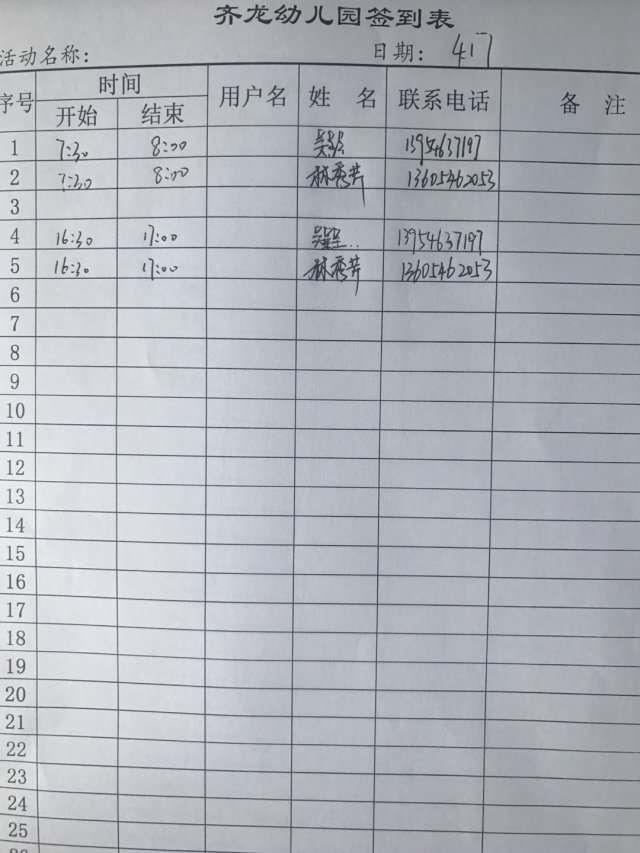 齐龙幼儿园签到表
活动名称: 日期: 4.17
序号 时间 用户名 姓名 联系电话 备注
开始 结束
1 7:30 8:00 13954637197
2 7:30 8:00 林秀芹 13605462053
3
4 16:30 17:00 13954637197
5 16:30 17:00 林秀芹 13605462053
6
7
8
9
10
11
12
13
14
15
16
17
18
19
20
21
22
23
24
25